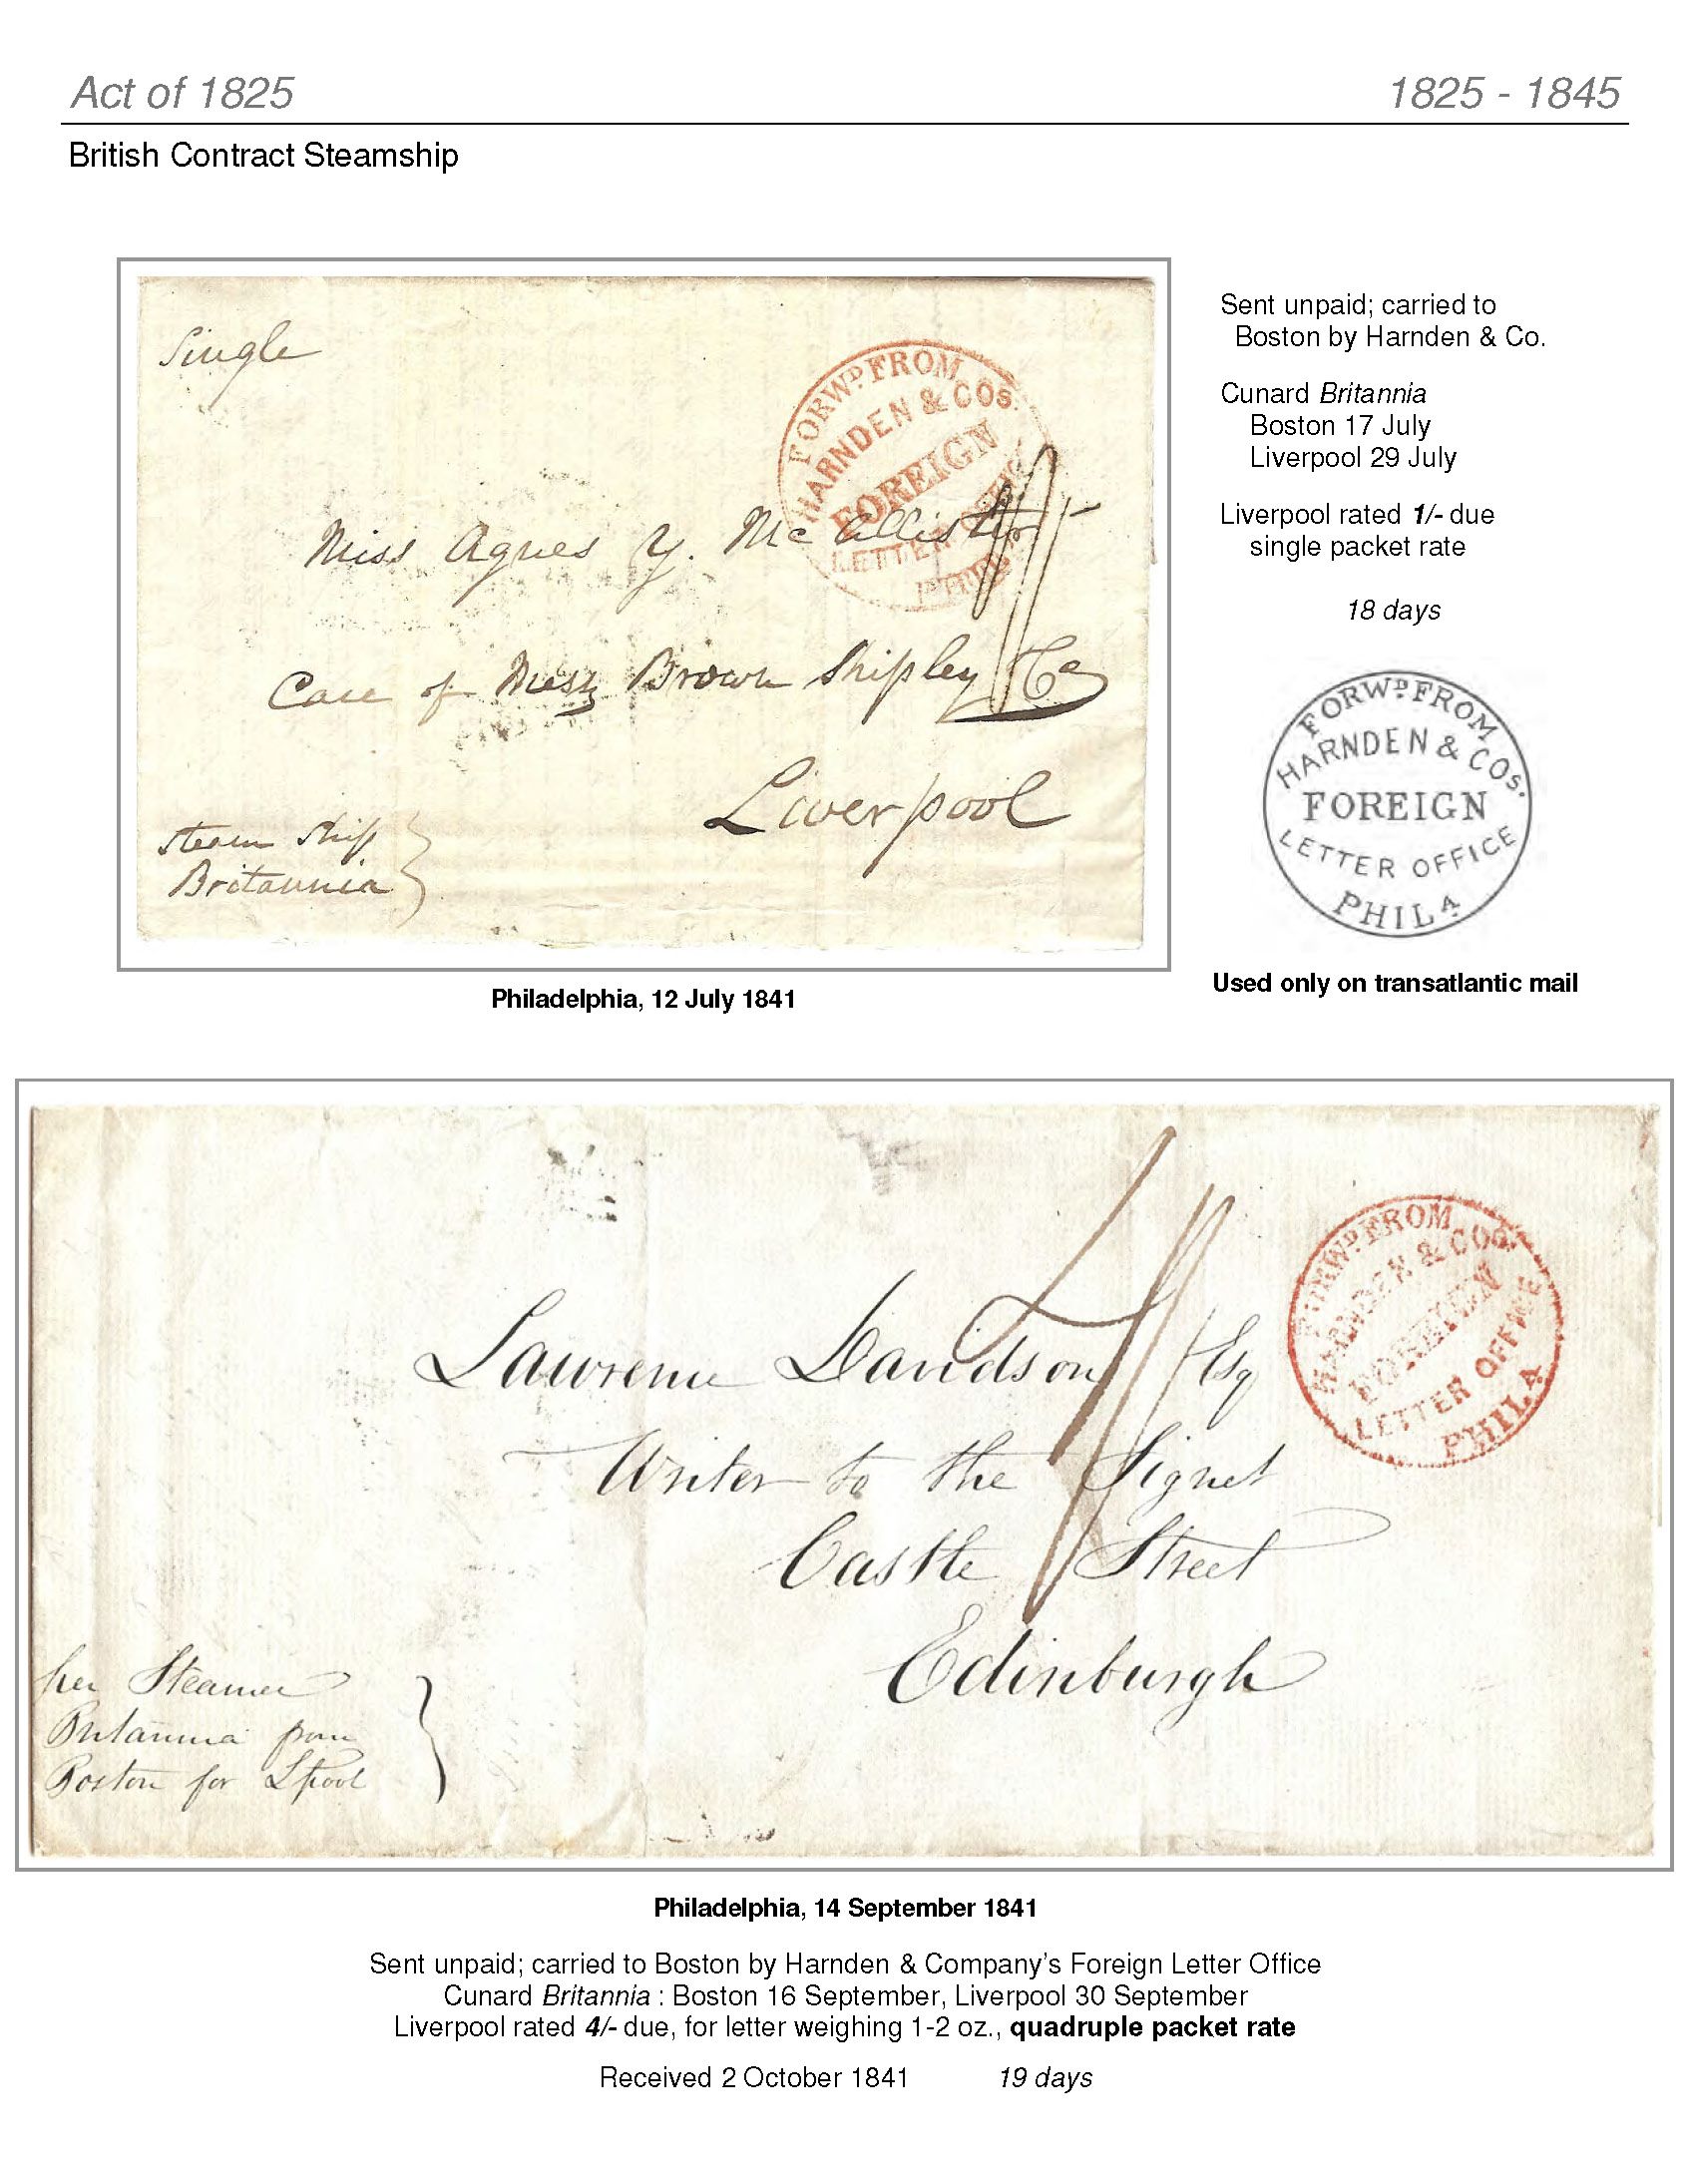 Act of 1825
1825 - 1845
British Contract Steamship
Single
FORWD FROM
HARNDEN & COS.
FOREIGN
LETTER
Miss Agnes Y. McAllister
1/-
Care of Messrs Brown Shipley & Co
Liverpool
Steam Ship
Britannia
Philadelphia, 12 July 1841
Sent unpaid; carried to
Boston by Harnden & Co.
Cunard Britannia
Boston 17 July
Liverpool 29 July
Liverpool rated 1/- due
single packet rate
18 days
FORWD FROM
HARNDEN & COS.
FOREIGN
LETTER OFFICE
PHILA
Used only on transatlantic mail
FORWD FROM
HARNDEN & COS.
FOREIGN
LETTER OFFICE
PHILA
4/
Lawrence Davidson Esq
Writer to the Signet
Castle Street
Edinburgh
per Steamer
Britannia from
Boston for Lpool
Philadelphia, 14 September 1841
Sent unpaid; carried to Boston by Harnden & Company's Foreign Letter Office
Cunard Britannia : Boston 16 September, Liverpool 30 September
Liverpool rated 4/- due, for letter weighing 1-2 oz., quadruple packet rate
Received 2 October 1841 19 days